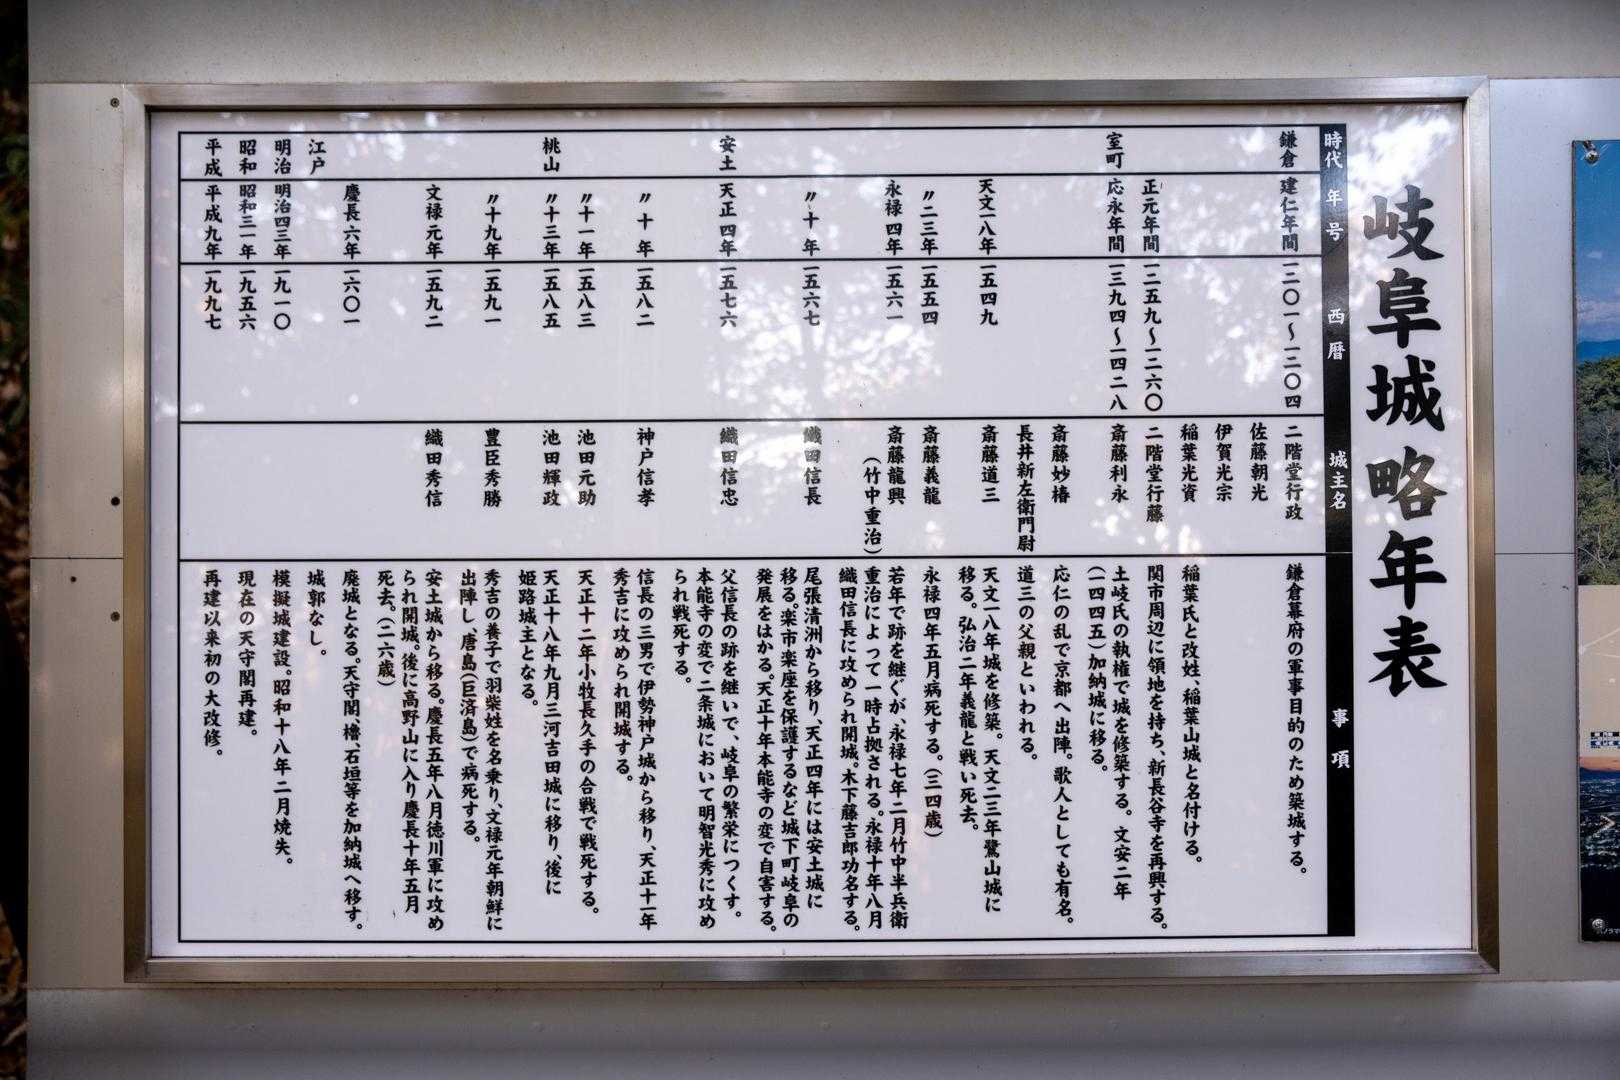 岐阜城略年表
時代 年号 西暦 城主名 事項
鎌倉 建仁年間 一二〇一〜一二〇四 二階堂行政 鎌倉幕府の軍事目的のため築城する。
佐藤朝光
伊賀光宗
稲葉光資 稲葉氏と改姓、稲葉山城と名付ける。
正元年間 一二五九〜一二六〇 二階堂行藤 関市周辺に領地を持ち、新長谷寺を再興する。
室町 応永年間 一三九四〜一四二八 斎藤利永 土岐氏の執権で城を修築する。文安二年
(一四四五)加納城に移る。
斎藤妙椿 応仁の乱で京都へ出陣。歌人としても有名。
長井新左衛門尉 道三の父親といわれる。
天文一八年 一五四九 斎藤道三 天文一八年城を修築。天文二三年鷺山城に
移る。弘治二年義龍と戦い死去。
〃二三年 一五五四 斎藤義龍 永禄四年五月病死する。(三四歳)
永禄四年 一五六一 斎藤龍興 若年で跡を継ぐが、永禄七年二月竹中半兵衛
(竹中重治) 重治によって一時占拠される。永禄十年八月
織田信長に攻められ開城。木下藤吉郎功名する。
〃十年 一五六七 織田信長 尾張清洲から移り、天正四年には安土城に
移る。楽市楽座を保護するなど城下町岐阜の
発展をはかる。天正十年本能寺の変で自害する。
安土 天正四年 一五七六 織田信忠 父信長の跡を継いで、岐阜の繁栄につくす。
本能寺の変で二条城において明智光秀に攻め
られ戦死する。
〃十年 一五八二 神戸信孝 信長の三男で伊勢神戸城から移り、天正十一年
秀吉に攻められ開城する。
〃十一年 一五八三 池田元助 天正十二年小牧長久手の合戦で戦死する。
桃山 〃十三年 一五八五 池田輝政 天正十八年九月三河吉田城に移り、後に
姫路城主となる。
〃十九年 一五九一 豊臣秀勝 秀吉の養子で羽柴姓を名乗り、文禄元年朝鮮に
出陣し、唐島(巨済島)で病死する。
文禄元年 一五九二 織田秀信 安土城から移る。慶長五年八月徳川軍に攻め
られ開城。後に高野山に入り慶長十年五月
死去。(二六歳)
慶長六年 一六〇一 廃城となる。天守閣、櫓、石垣等を加納城へ移す。
江戸 城郭なし。
明治 明治四三年 一九一〇 模擬城建設。昭和十八年二月焼失。
昭和 昭和三一年 一九五六 現在の天守閣再建。
平成 平成九年 一九九七 再建以来初の大改修。